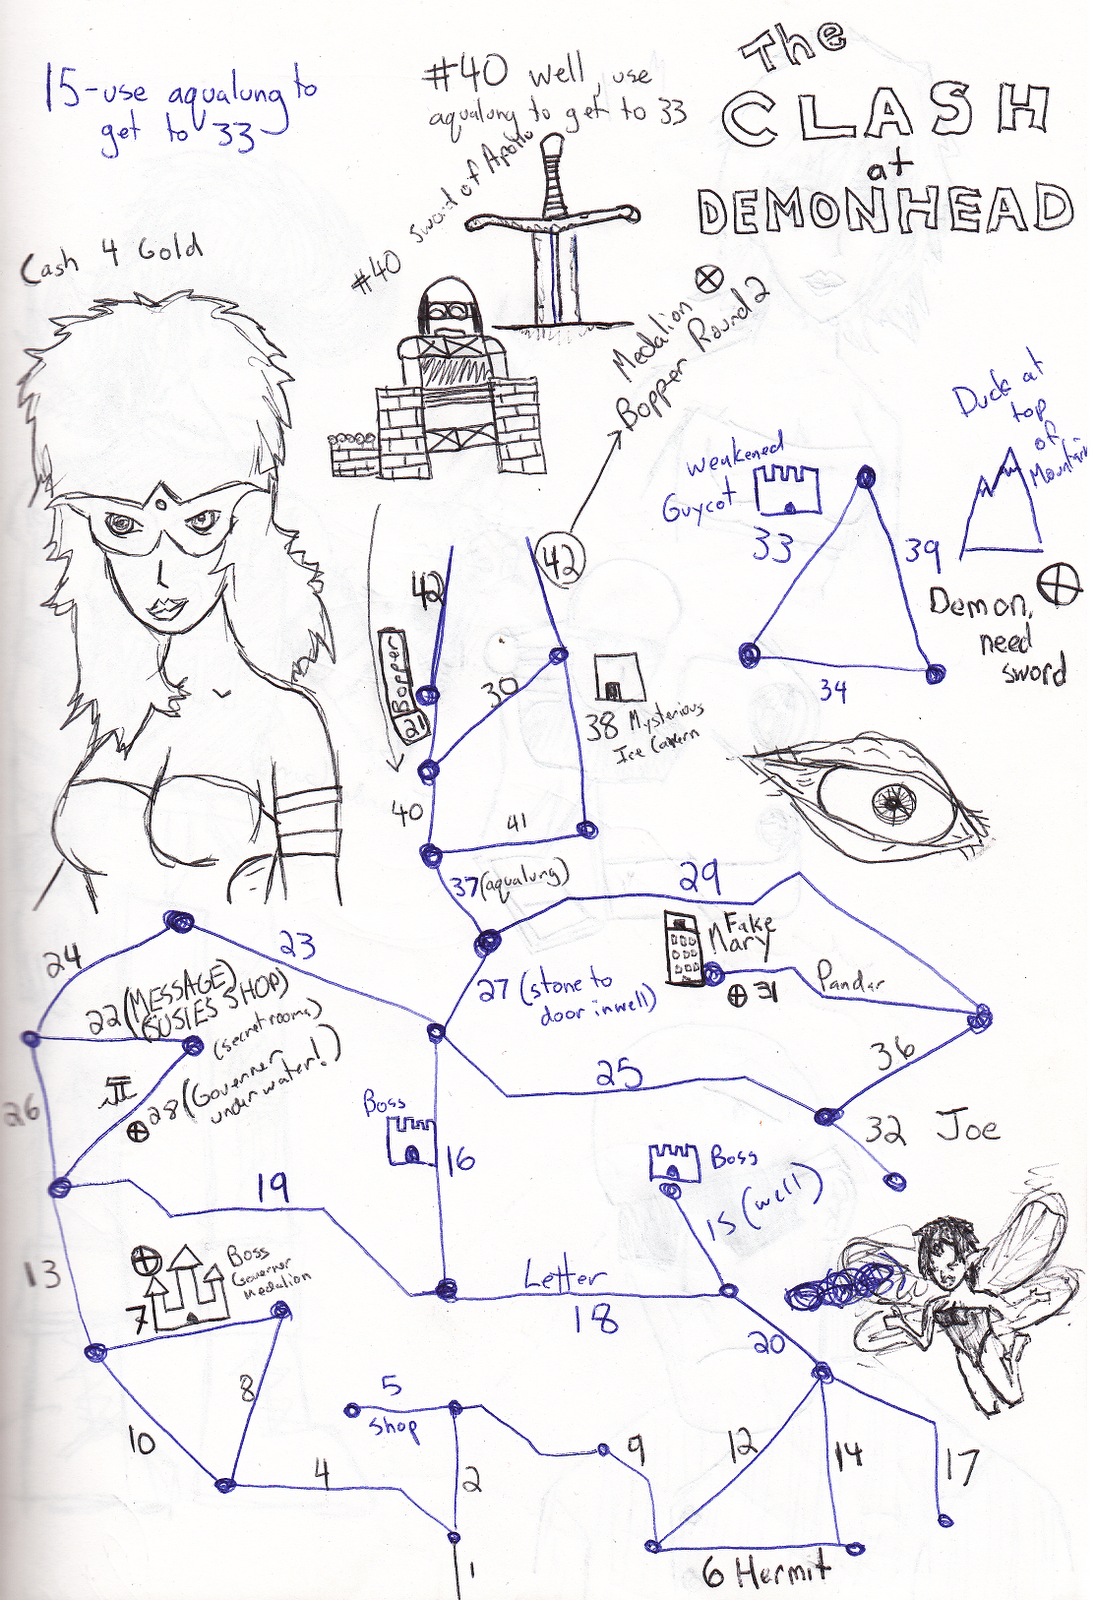 The
CLASH
at
DEMONHEAD
15-use aqualung to
get to 33
#40 well, use
aqualung to get to 33
#40 Sword of Apollo
Cash 4 Gold
Medalion
Bopper Round 2
Duck at
top
of
Mountain
weakened
Guycot
33
39
34
Demon,
need
sword
42
42
Bopper
21
30
38 Mysterious
Ice Cavern
40
41
37 (aqualung)
29
24
23
Fake
Mary
31
Pandar
27 (stone to
door in well)
22 (MESSAGE)
SUSIES SHOP)
(secret rooms)
28 (Governer
under water!)
26
25
36
32 Joe
Boss
16
Boss
15 (well)
19
13
Boss
Governor
Medalion
7
Letter
18
20
8
5
Shop
10
4
2
9
12
14
17
1
6 Hermit